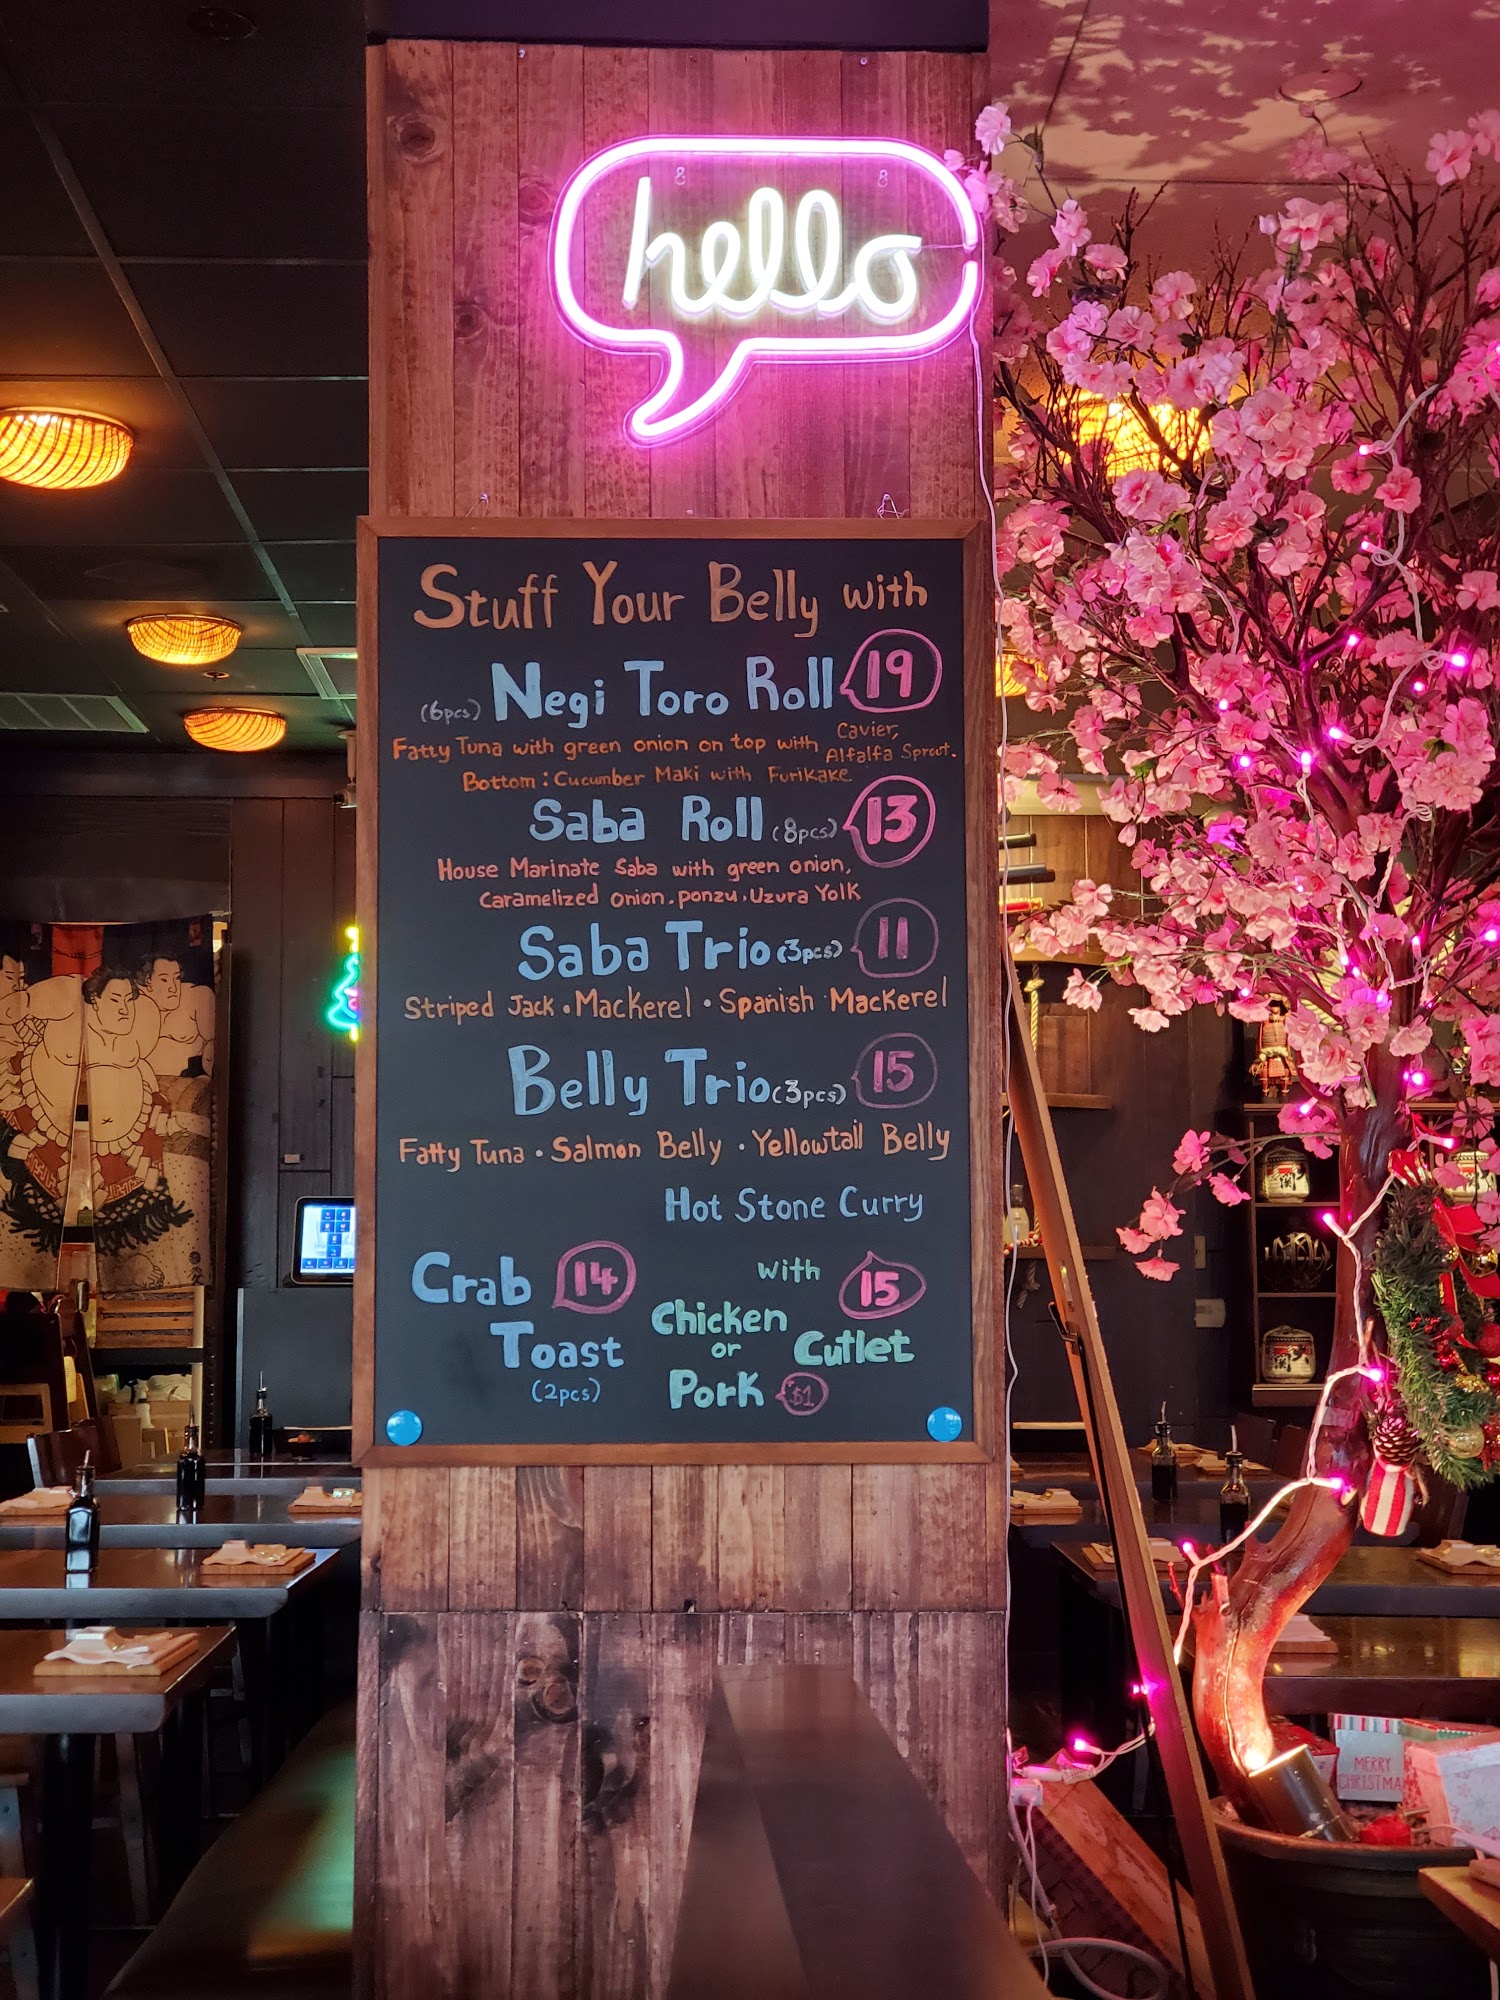 hello
Stuff Your Belly with
(6pcs) Negi Toro Roll 19
Fatty Tuna with green onion on top with Cavier, Alfalfa Sprout.
Bottom : Cucumber Maki with Furikake
Saba Roll (8pcs) 13
House Marinate Saba with green onion,
Caramelized onion. ponzu. Uzura Yolk
Saba Trio (3pcs) 11
Striped Jack • Mackerel • Spanish Mackerel
Belly Trio (3pcs) 15
Fatty Tuna • Salmon Belly • Yellowtail Belly
Crab 14
Toast
(2pcs)
Hot Stone Curry
with 15
Chicken
or Cutlet
Pork $1
MERRY
CHRISTMA